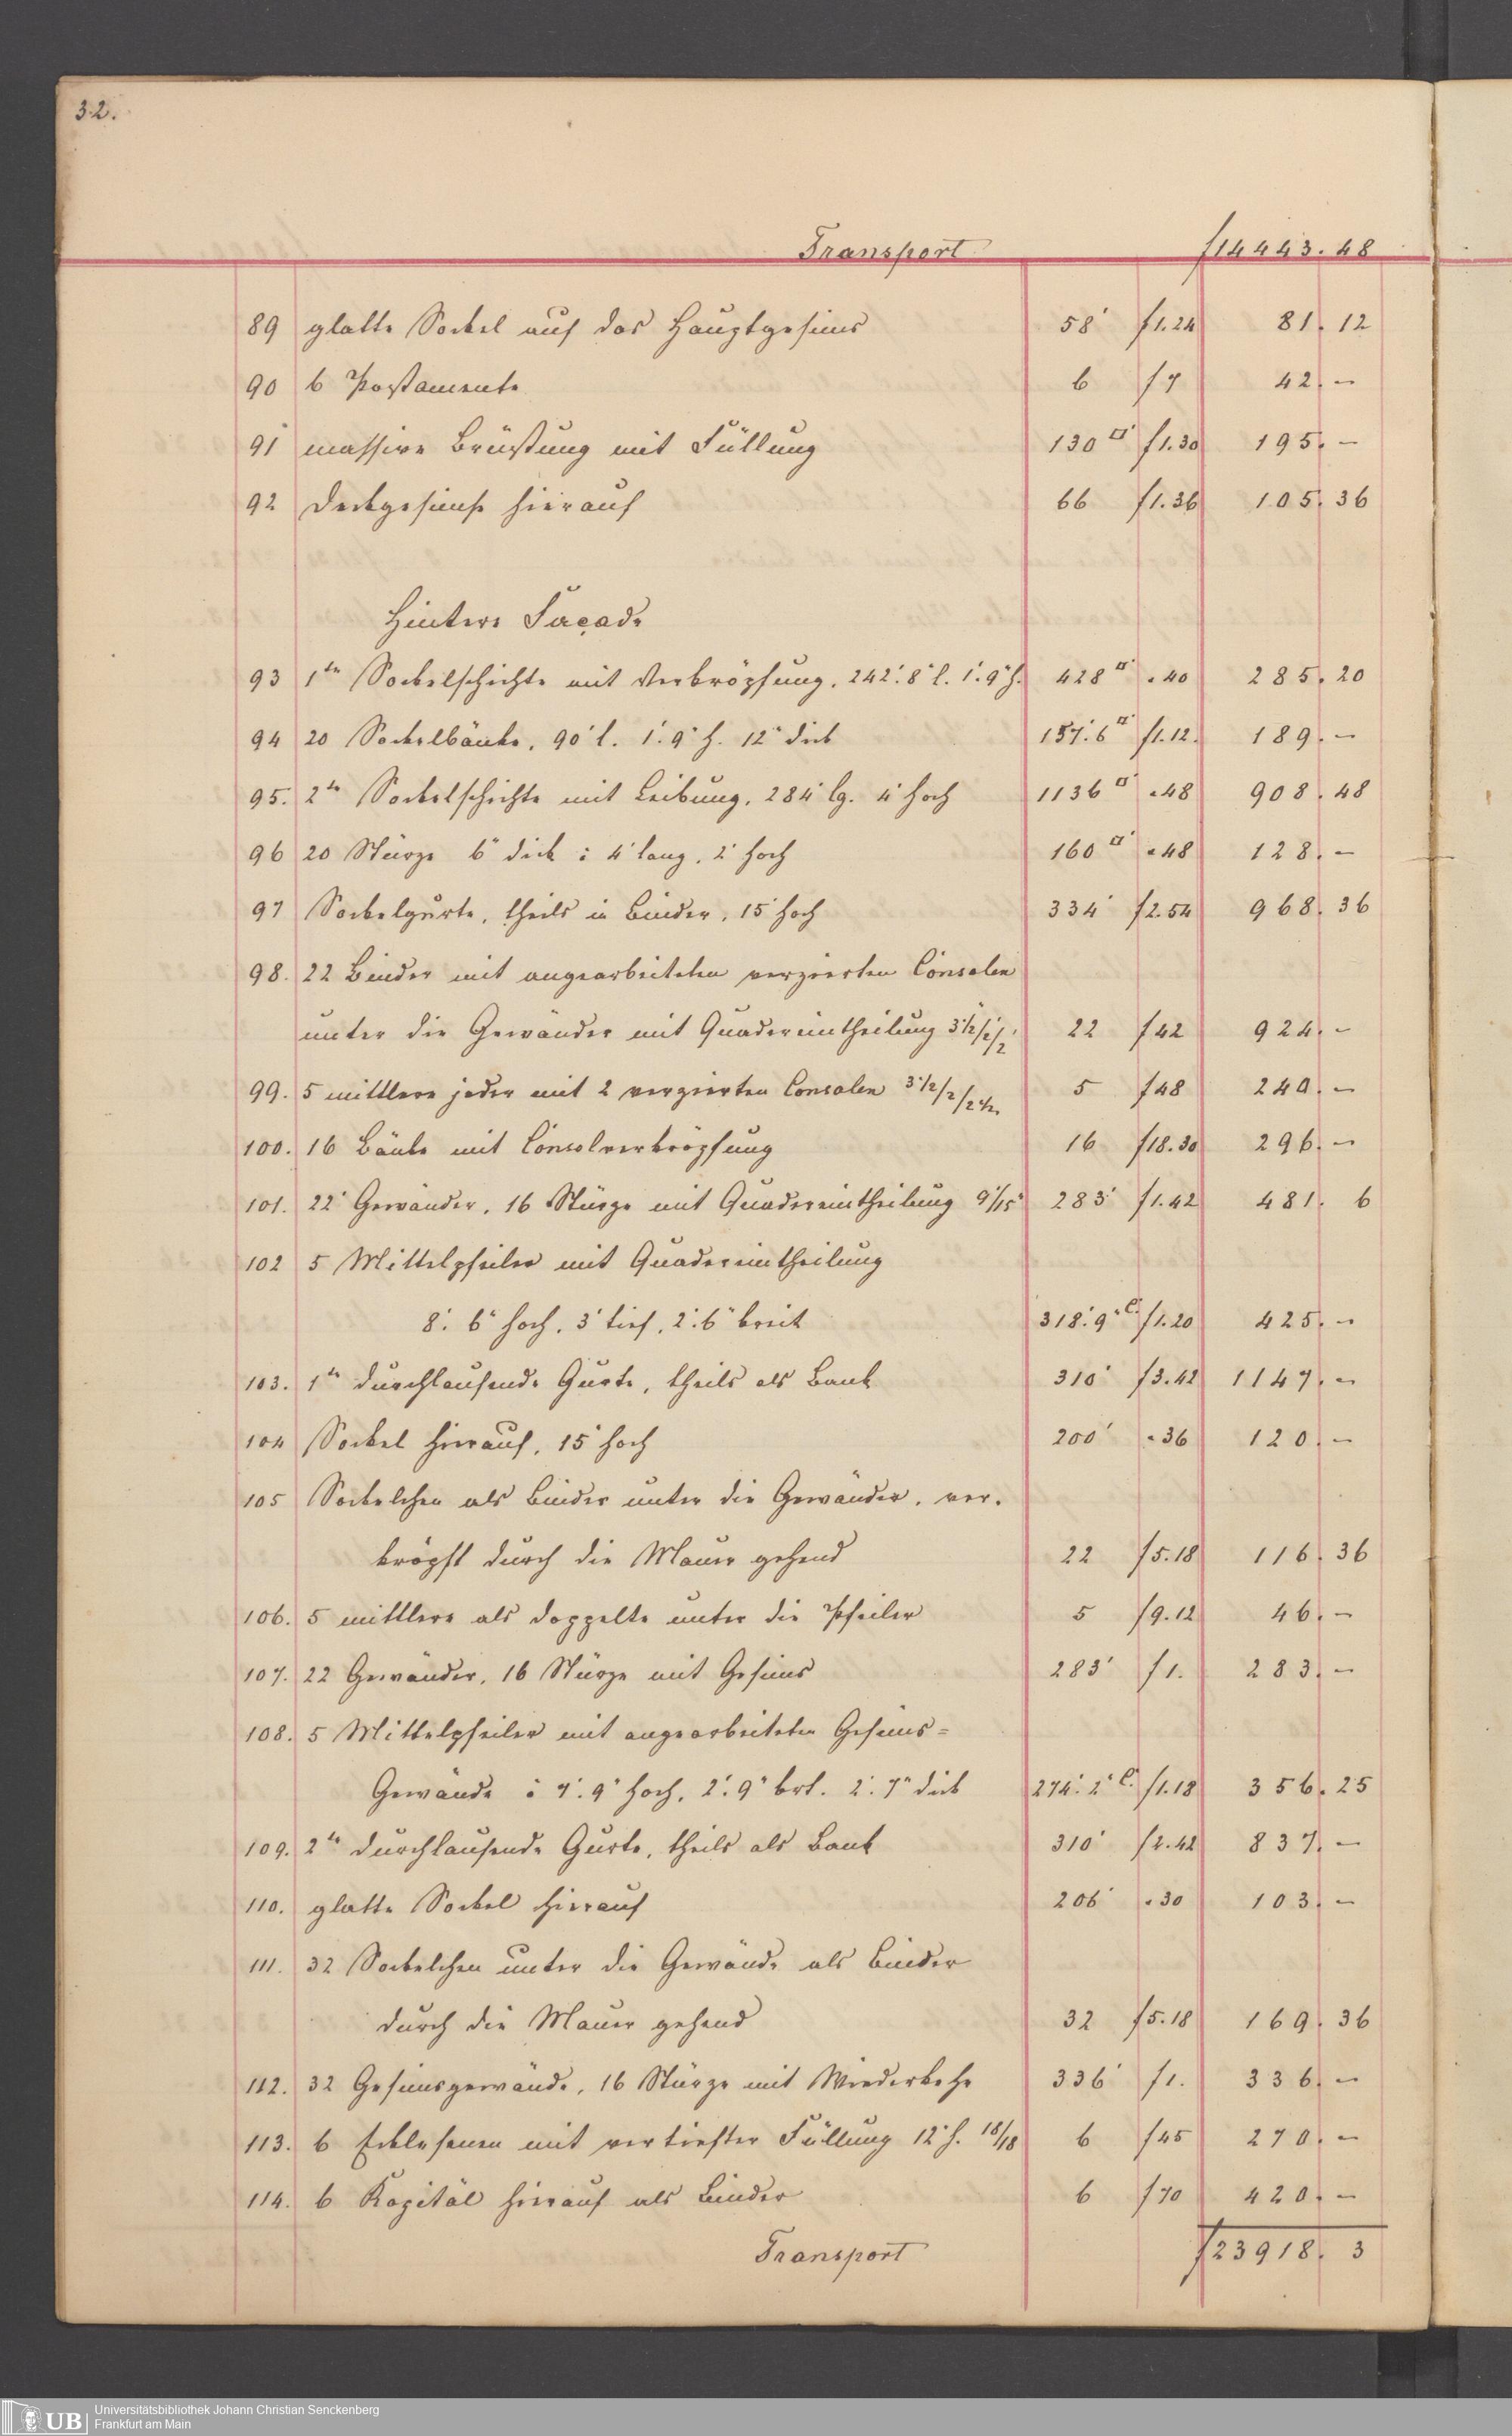 32.
Transport f 14443. 48
89 glatte Sockel auf das Hauptgesims 58' f 1.24 81. 12
90 6 Postamente 6 f 7 42. –
91 massive Brüstung mit Füllung 130 □' f 1.30 195. –
92 Deckgesimse hierauf 66 f 1.36 105. 36
Hintere Façade
93 1te Sockelschichte mit Verkröpfung, 242'. 8" l. 1'. 9" h. 428 □' „ 40 285. 20
94 20 Sockelbänke, 90' l. 1'. 9" h. 12" dick 157'. 6 □" f 1.12. 189. –
95. 2te Sockelschichte mit Leibung, 284' lg. 4' hoch 1136 □' „ 48 908. 48
96 20 Stürze 6" dick à 4' lang, 2' hoch 160 □' „ 48 128. –
97 Sockelgurte, theils in Binder, 15" hoch 334' f 2.54 968. 36
98. 22 Binder mit angearbeiteten verzierten Consolen
unter die Gewänder mit Quadereintheilung 22 f 42 924. –
99. 5 mittlere jeder mit 2 verzierten Consolen 5 f 48 240. –
100. 16 Bänke mit Consolverkröpfung 16 f 18.30 296. –
101. 22 Gewänder, 16 Stürze mit Quadereintheilung 9"/15" 283' f 1.42 481. 6
102 5 Mittelpfeiler mit Quadereintheilung
8'. 6" hoch, 3' tief, 2'. 6" breit 318'. 9" C.' f 1.20 425. –
103. 1te durchlaufende Gurte, theils als Bank 310' f 3.42 1147. –
104 Sockel hierauf, 15" hoch 200' „ 36 120. –
105 Sockelchen als Binder unter die Gewänder, ver-
kröpft durch die Mauer gehend 22 f 5.18 116. 36
106. 5 mittlere als doppelte unter die Pfeiler 5 f 9.12 46. –
107. 22 Gewänder, 16 Stürze mit Gesims 283' f 1. 283. –
108. 5 Mittelpfeiler mit angearbeiteten Gesims=
Gewände à 7'. 9" hoch, 2'. 9" brt. 2'. 7" dick 274'. 2" C.' f 1.18 356. 25
109. 2te durchlaufende Gurte, theils als Bank 310' f 2.42 837. –
110. glatte Sockel hierauf 206' „ 30 103. –
111. 32 Sockelchen unter die Gewände als Binder
durch die Mauer gehend 32 f 5.18 169. 36
112. 32 Gesimsgewände, 16 Stürze mit Wiederkehr 336' f 1. 336. –
113. 6 Ecklesenen mit vertiefter Füllung 12' h. 18/18 6 f 45 270. –
114. 6 Kapitäl hierauf als Binder 6 f 70 420. –
Transport f 23918. 3
UB
Universitätsbibliothek Johann Christian Senckenberg
Frankfurt am Main